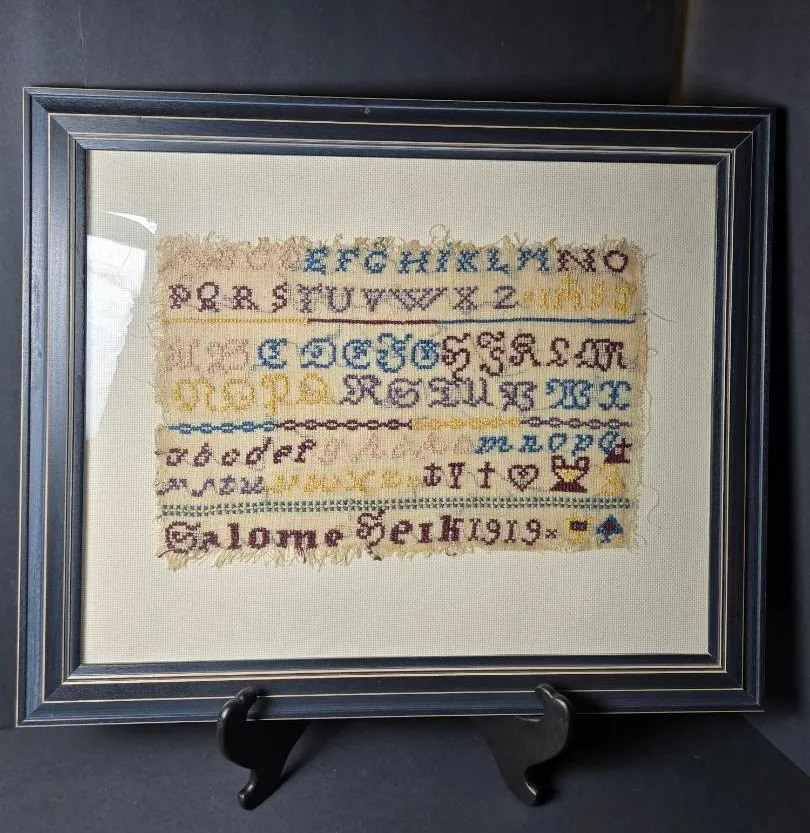 A B C D E F G H I K L M N O
P Q R S T U V W X Z
A B C D E F G H J K L M
N O P Q R S T U V W X
a b c d e f g h i k l m n o p q
r s t u v w x z
Salome Heik 1919